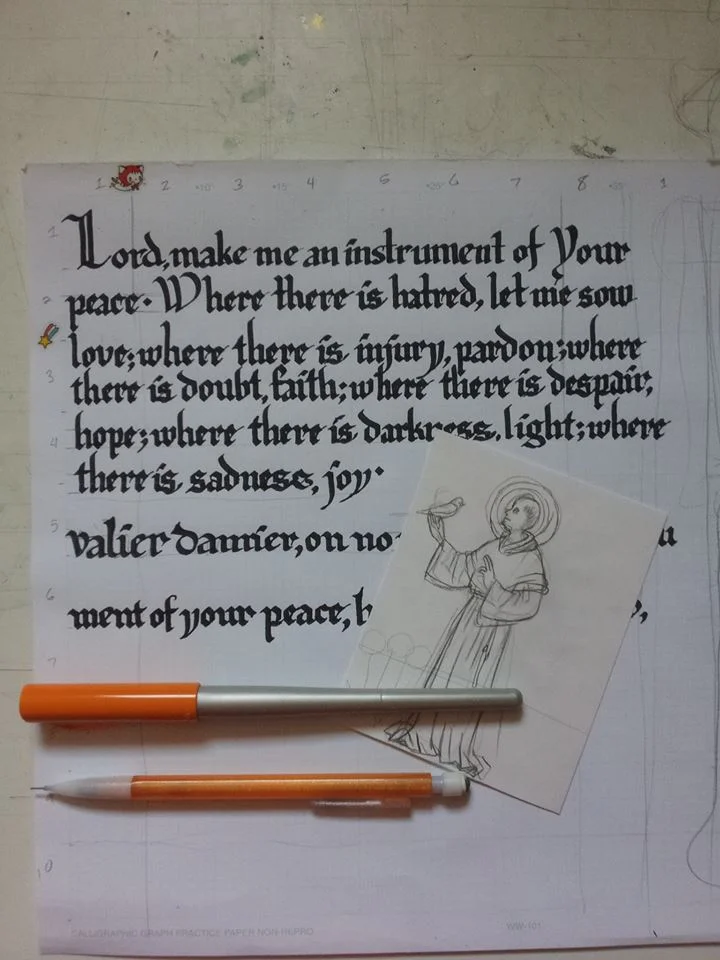 1 2 3 4 5 6 7 8 1
Lord, make me an instrument of Your
peace. Where there is hatred, let me sow
love; where there is injury, pardon; where
there is doubt, faith; where there is despair,
hope; where there is darkness, light; where
there is sadness, joy.
valier damier, on no
ment of your peace, h
CALLIGRAPHIC GRAPH PRACTICE PAPER NON-REPRO
WW-101